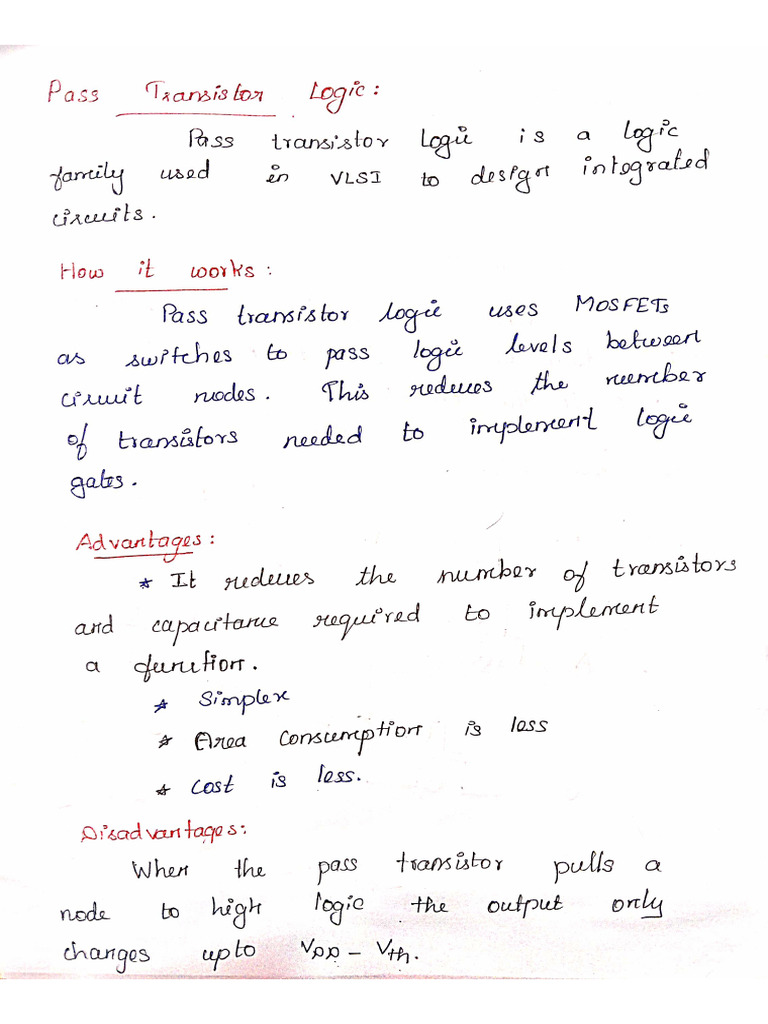 Pass Transistor Logic:
Pass transistor logic is a logic
family used in VLSI to design integrated
circuits.
How it works:
Pass transistor logic uses MOSFETs
as switches to pass logic levels between
circuit nodes. This reduces the number
of transistors needed to implement logic
gates.
Advantages:
* It reduces the number of transistors
and capacitance required to implement
a function.
* Simplex
* Area consumption is less
* Cost is less.
Disadvantages:
When the pass transistor pulls a
node to high logic the output only
changes upto VDD - Vth.